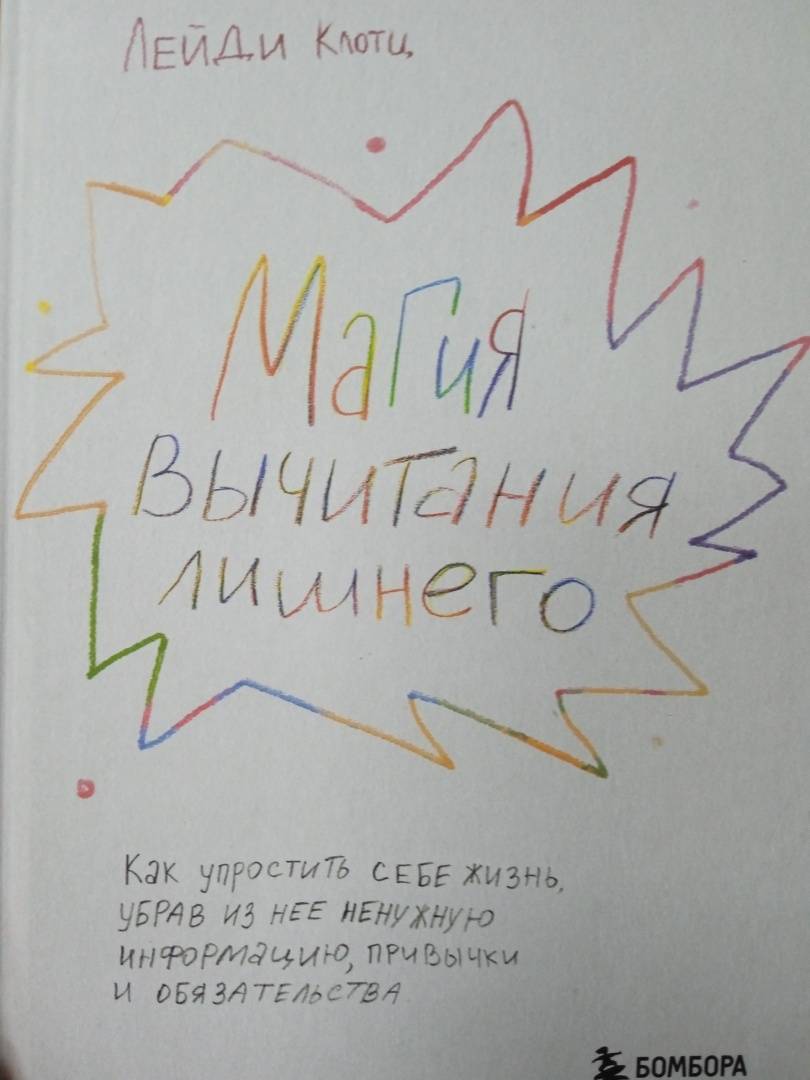 Лейди Клотц
Магия
вычитания
лишнего
Как упростить СЕБЕ жизнь,
УБРАВ ИЗ НЕЕ НЕНУЖНУЮ
ИНФОРМАЦИЮ, ПРИВЫЧКИ
И ОБЯЗАТЕЛЬСТВА
БОМБОРА